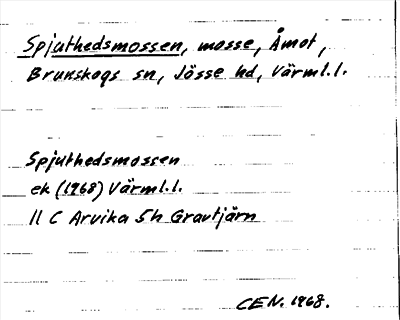 Spjuthedsmossen, mosse, Åmot,
Brunskogs sn, Jösse hd, Värml.l.
Spjuthedsmossen
ek (1968) Värml.l.
11 C Arvika 5h Gravtjärn
CEN. 1968.